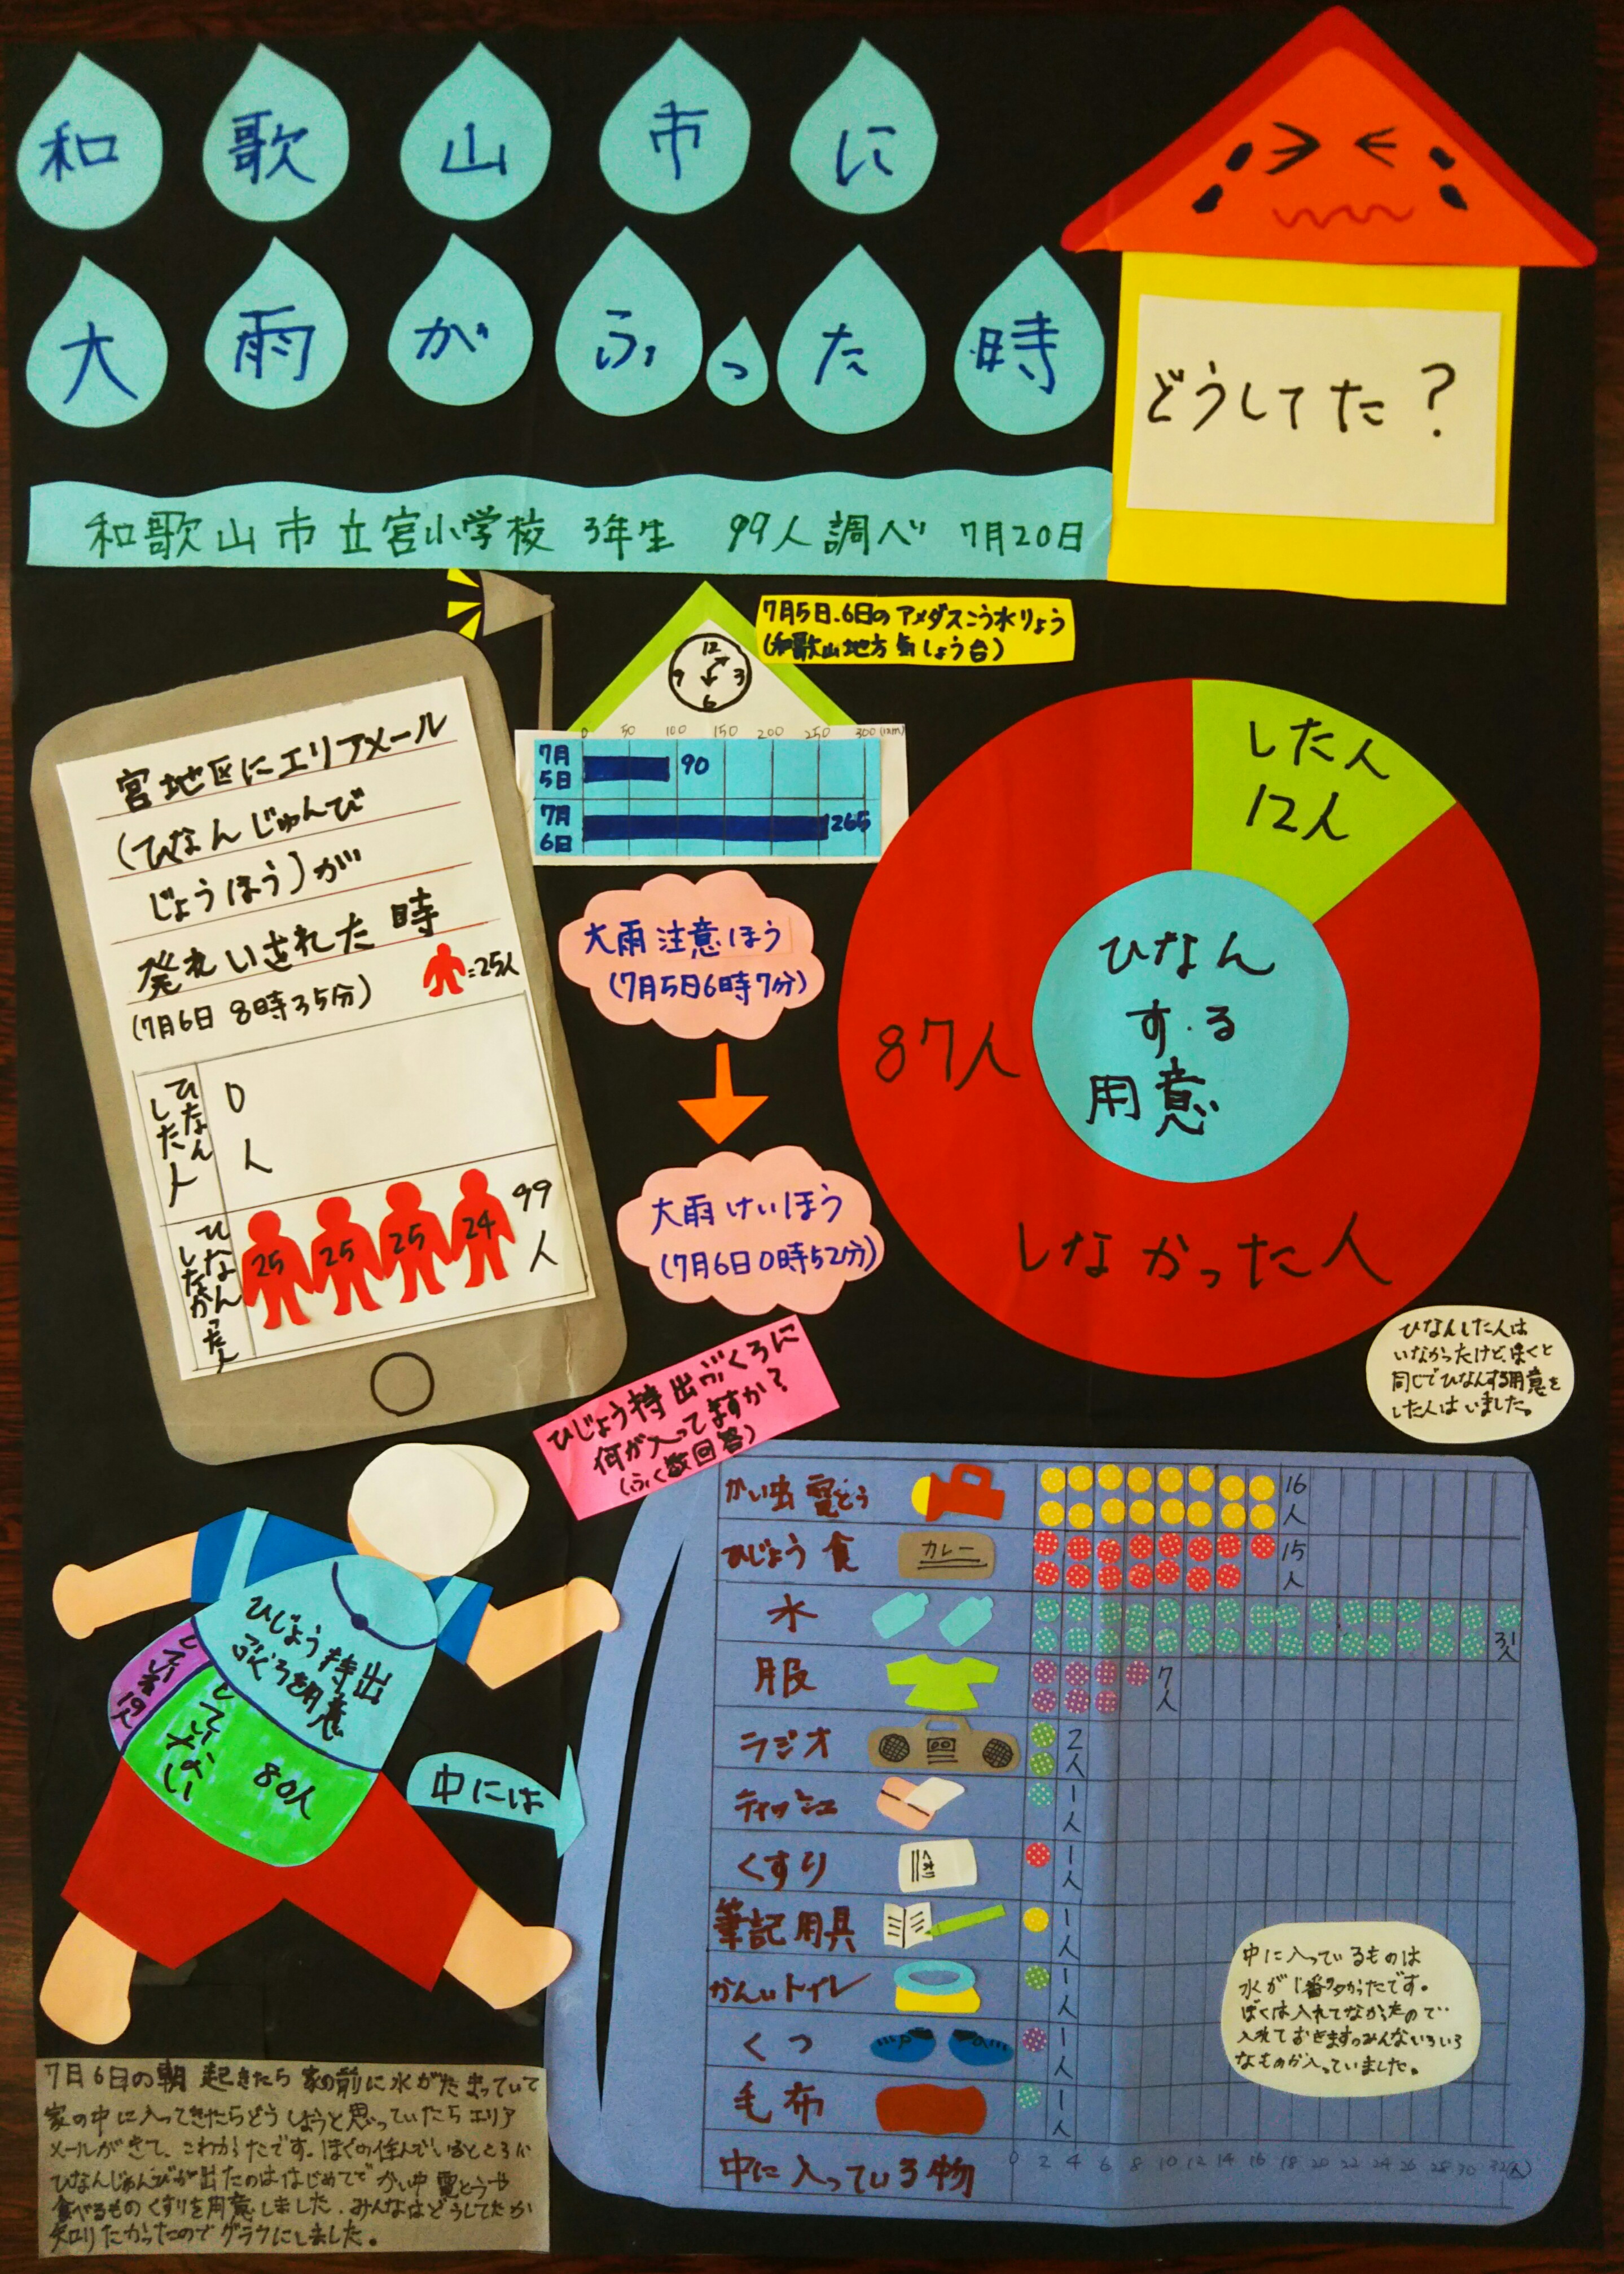 和歌山市に
大雨がふった時
どうしてた？
和歌山市立宮小学校 3年生 99人調べ 7月20日
7月5日、6日のアメダスこう水りょう
(和歌山地方気しょう台)
12
3
6
9
0 50 100 150 200 250 300(mm)
7月5日 90
7月6日 265
宮地区にエリアメール
(ひなんじゅんび
じょうほう)が
発れいされた時
(7月6日 8時35分)
=25人
ひなんした人 0人
ひなんしなかった人 25 25 25 24 99人
大雨注意ほう
(7月5日6時7分)
大雨けいほう
(7月6日0時52分)
した人
12人
ひなん
する
用意
87人
しなかった人
ひなんした人は
いなかったけど、ぼくと
同じでひなんする用意を
した人はいました。
ひじょう持出ぶくろに
何が入ってますか？
(ふく数回答)
ひじょう持出
ぶくろを用意
している 19人
していない 80人
中には
かい中電とう 16人
ひじょう食 カレー 15人
水 31人
服 7人
ラジオ 2人
ティッシュ 1人
くすり 1人
筆記用具 1人
かんいトイレ 1人
くつ 1人
毛布 1人
中に入っている物 0 2 4 6 8 10 12 14 16 18 20 22 24 26 28 30 32(人)
中に入っているものは
水が1番多かったです。
ぼくは入れてなかったので
入れておきます。みんないろいろ
なものが入っていました。
7月6日の朝 起きたら 家の前に水がたまっていて
家の中に入ってきたらどうしようと思っていたらエリア
メールがきて、こわかったです。ぼくの住んでいるところに
ひなんじゅんびが出たのははじめてで かい中電とうや
食べるもの くすりを用意しました。みんなはどうしてたか
知りたかったのでグラフにしました。